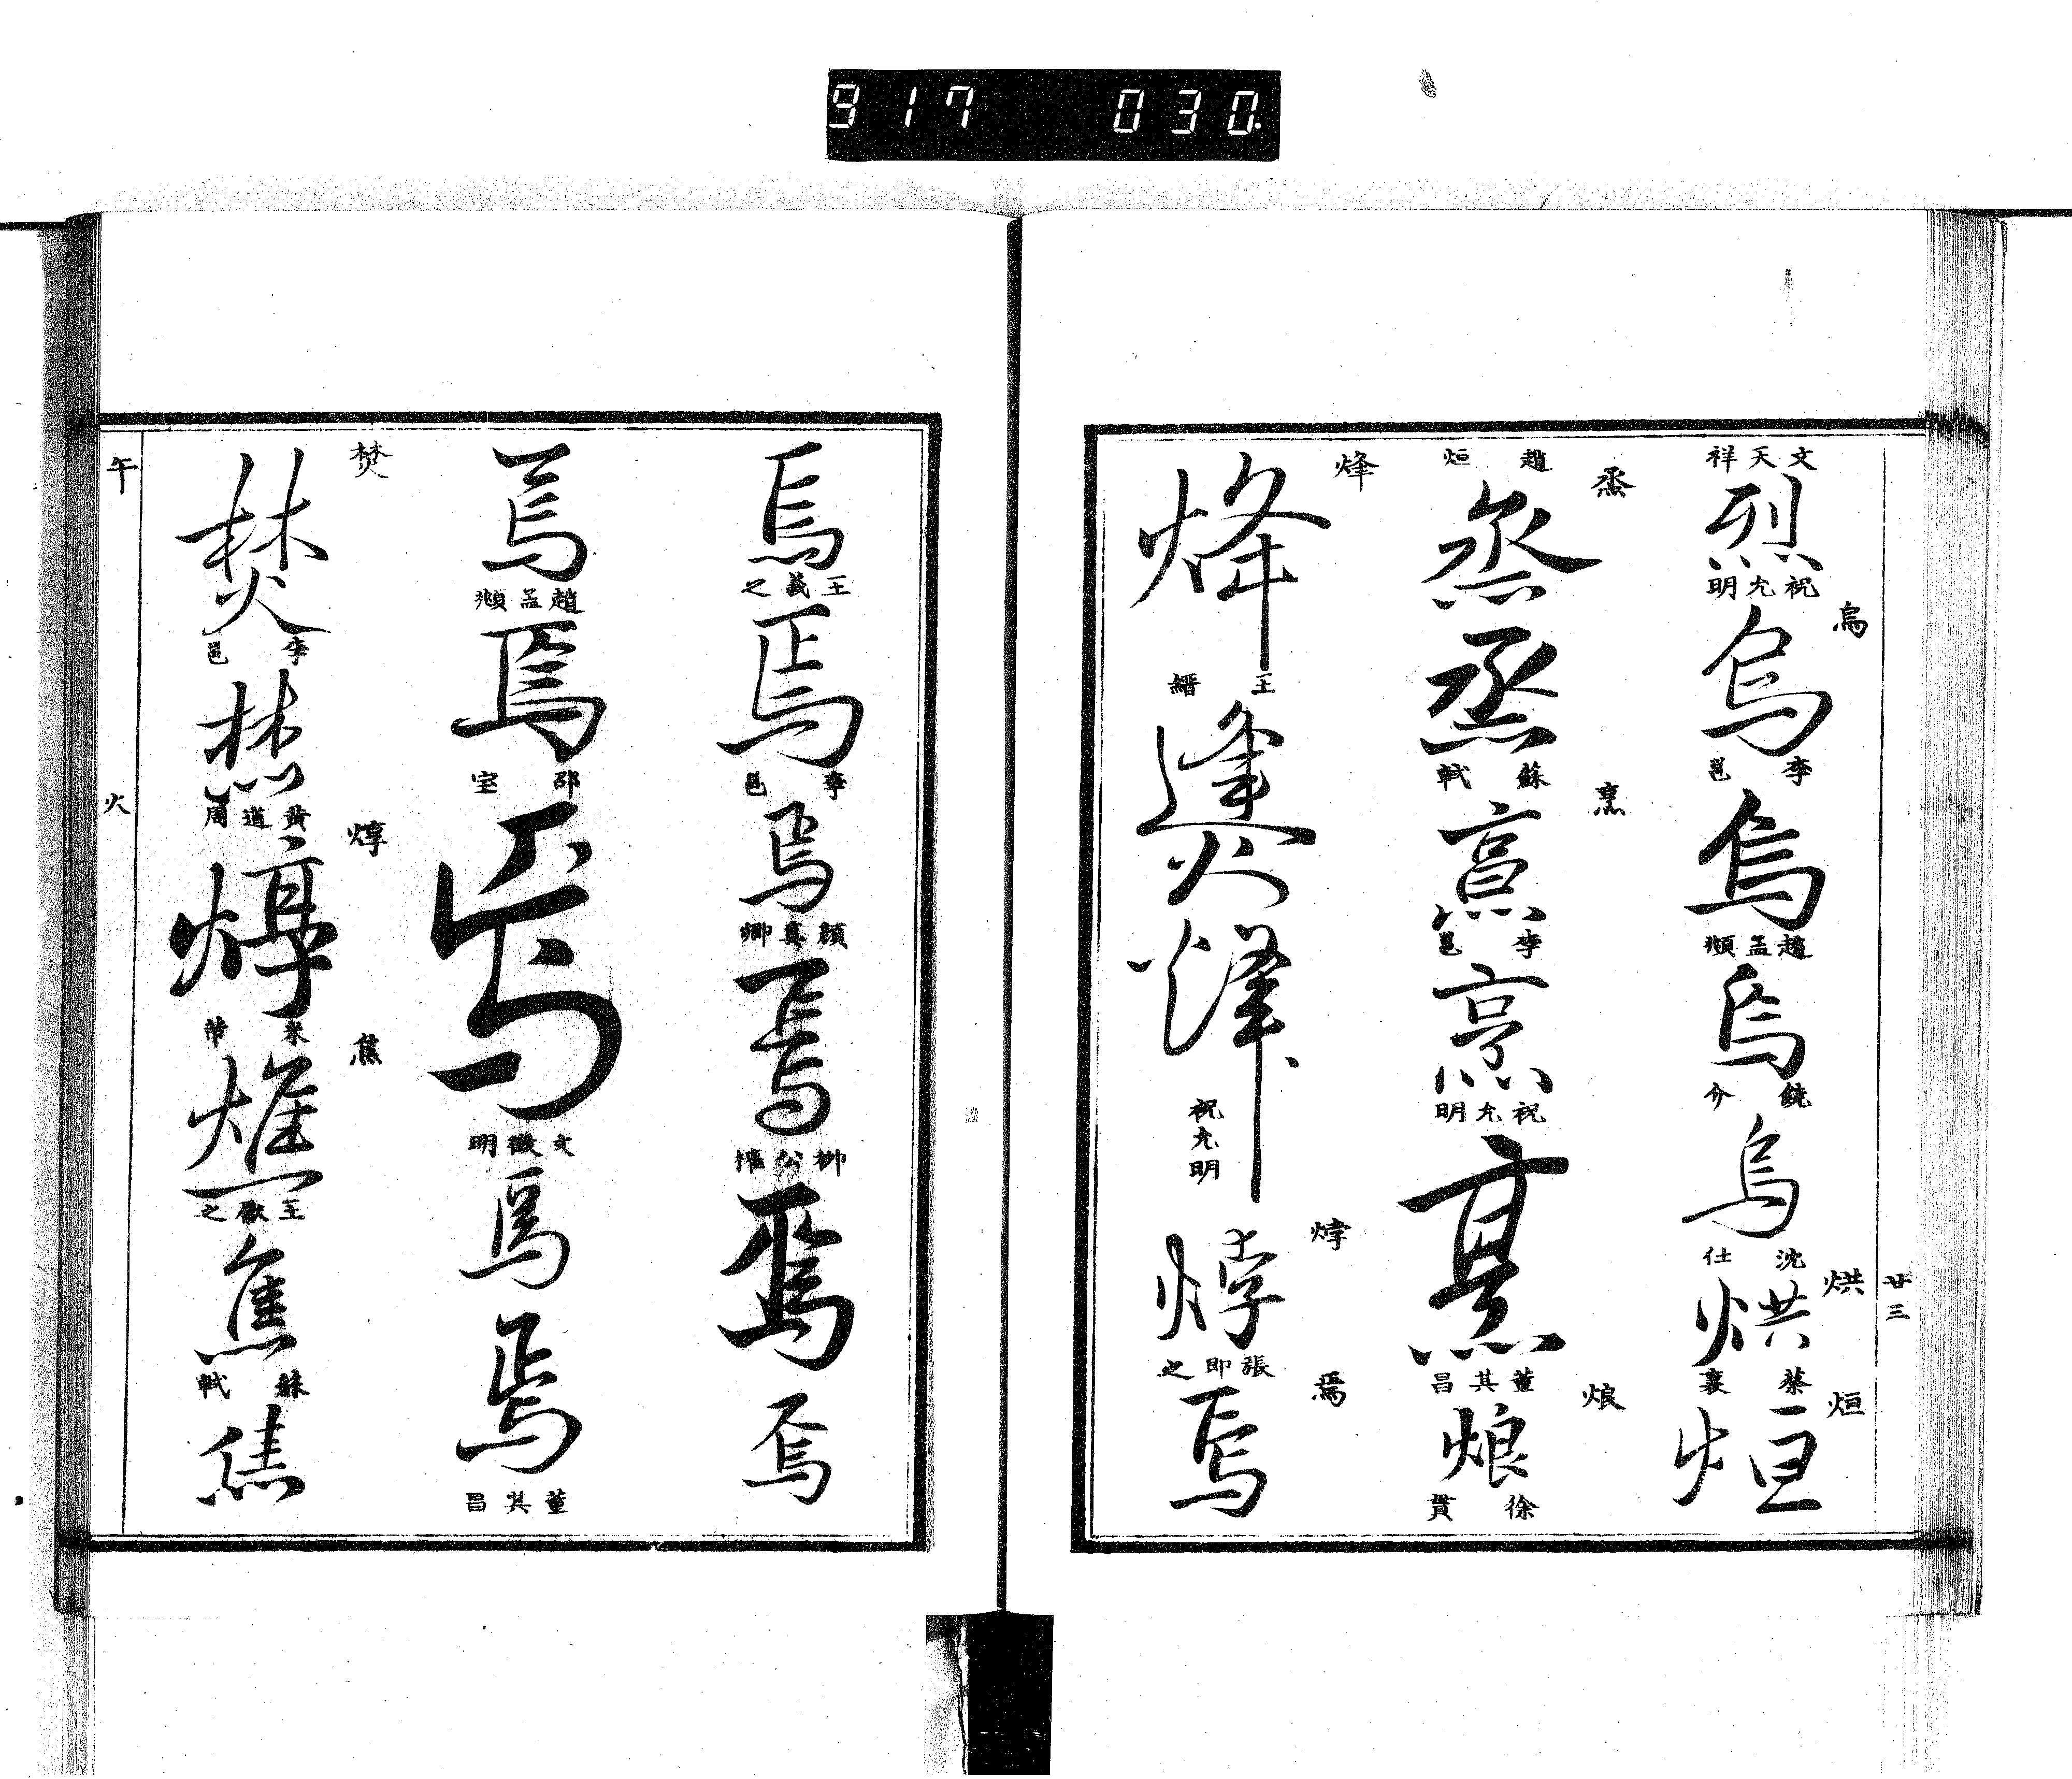 917 030
廿三
文天祥
烈
祝允明
烏
烏
李邕
烏
趙孟頫
烏
饒介
烏
沈仕
烘
烘
蔡襄
烜
烜
趙烜
烝
烝
烝
蘇軾
烹
烹
李邕
烹
祝允明
烹
董其昌
烺
烺
徐賁
烽
烽
王縉
烽
祝允明
焞
張即之
焉
焉
焉
王羲之
焉
李邕
焉
顏真卿
焉
柳公權
焉
焉
焉
趙孟頫
焉
邵寶
焉
文徵明
焉
焉
董其昌
焚
焚
李邕
焚
黃道周
焞
焞
米芾
焦
焦
王獻之
焦
蘇軾
焦
午
火